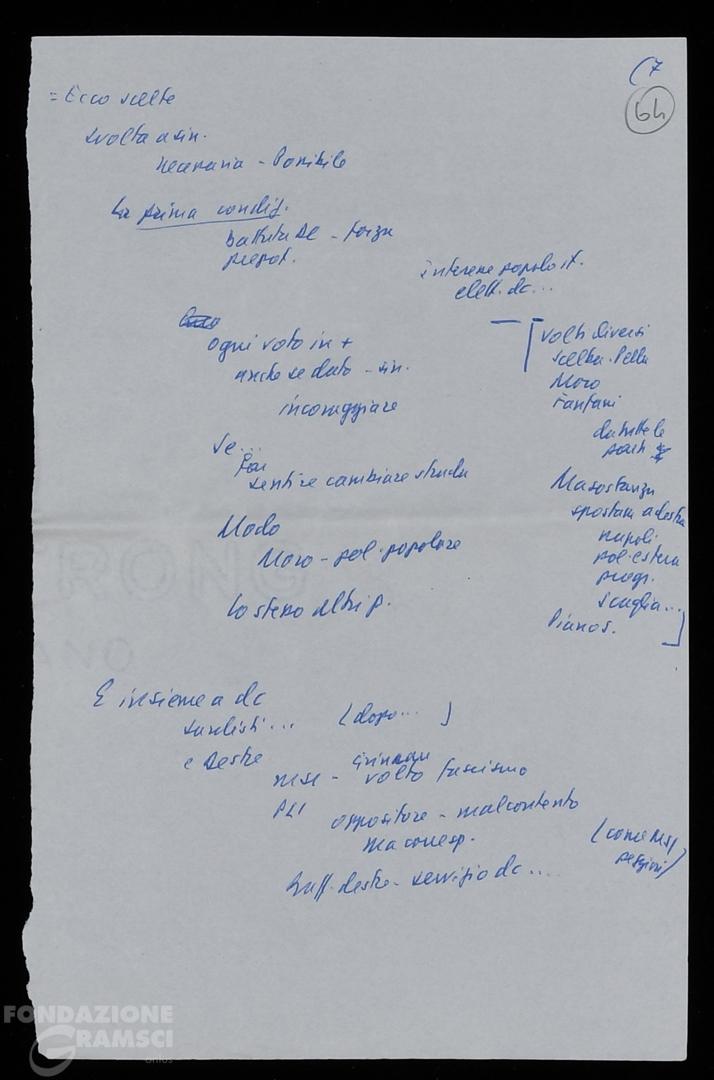 (7
64
= Ecco scelte
svolta a sin.
necessaria - Possibile
La prima condiz.
battuta DC - forza
prepot.
interesse popolo it.
elett. dc...
ogni voto in +
anche se dato - sin.
incoraggiare
Se...
Far
sentire cambiare strada
Modo
Moro - pol. popolare
Lo stesso altri p.
volti diversi
Scelba. Pella
Moro
Fanfani
da tutte le
Ma sostanza
spostam. a destra
napoli
pol. estera
progr.
Scuglia...
Piano S.
E insieme a dc
saralisti... (dopo...)
e Destre
MSI - volto fascismo
PLI
oppositore - malcontento
ma corresp.
(come MSI
peggiori)
Raff. destre - servizio dc....
FONDAZIONE
GRAMSCI
onlus